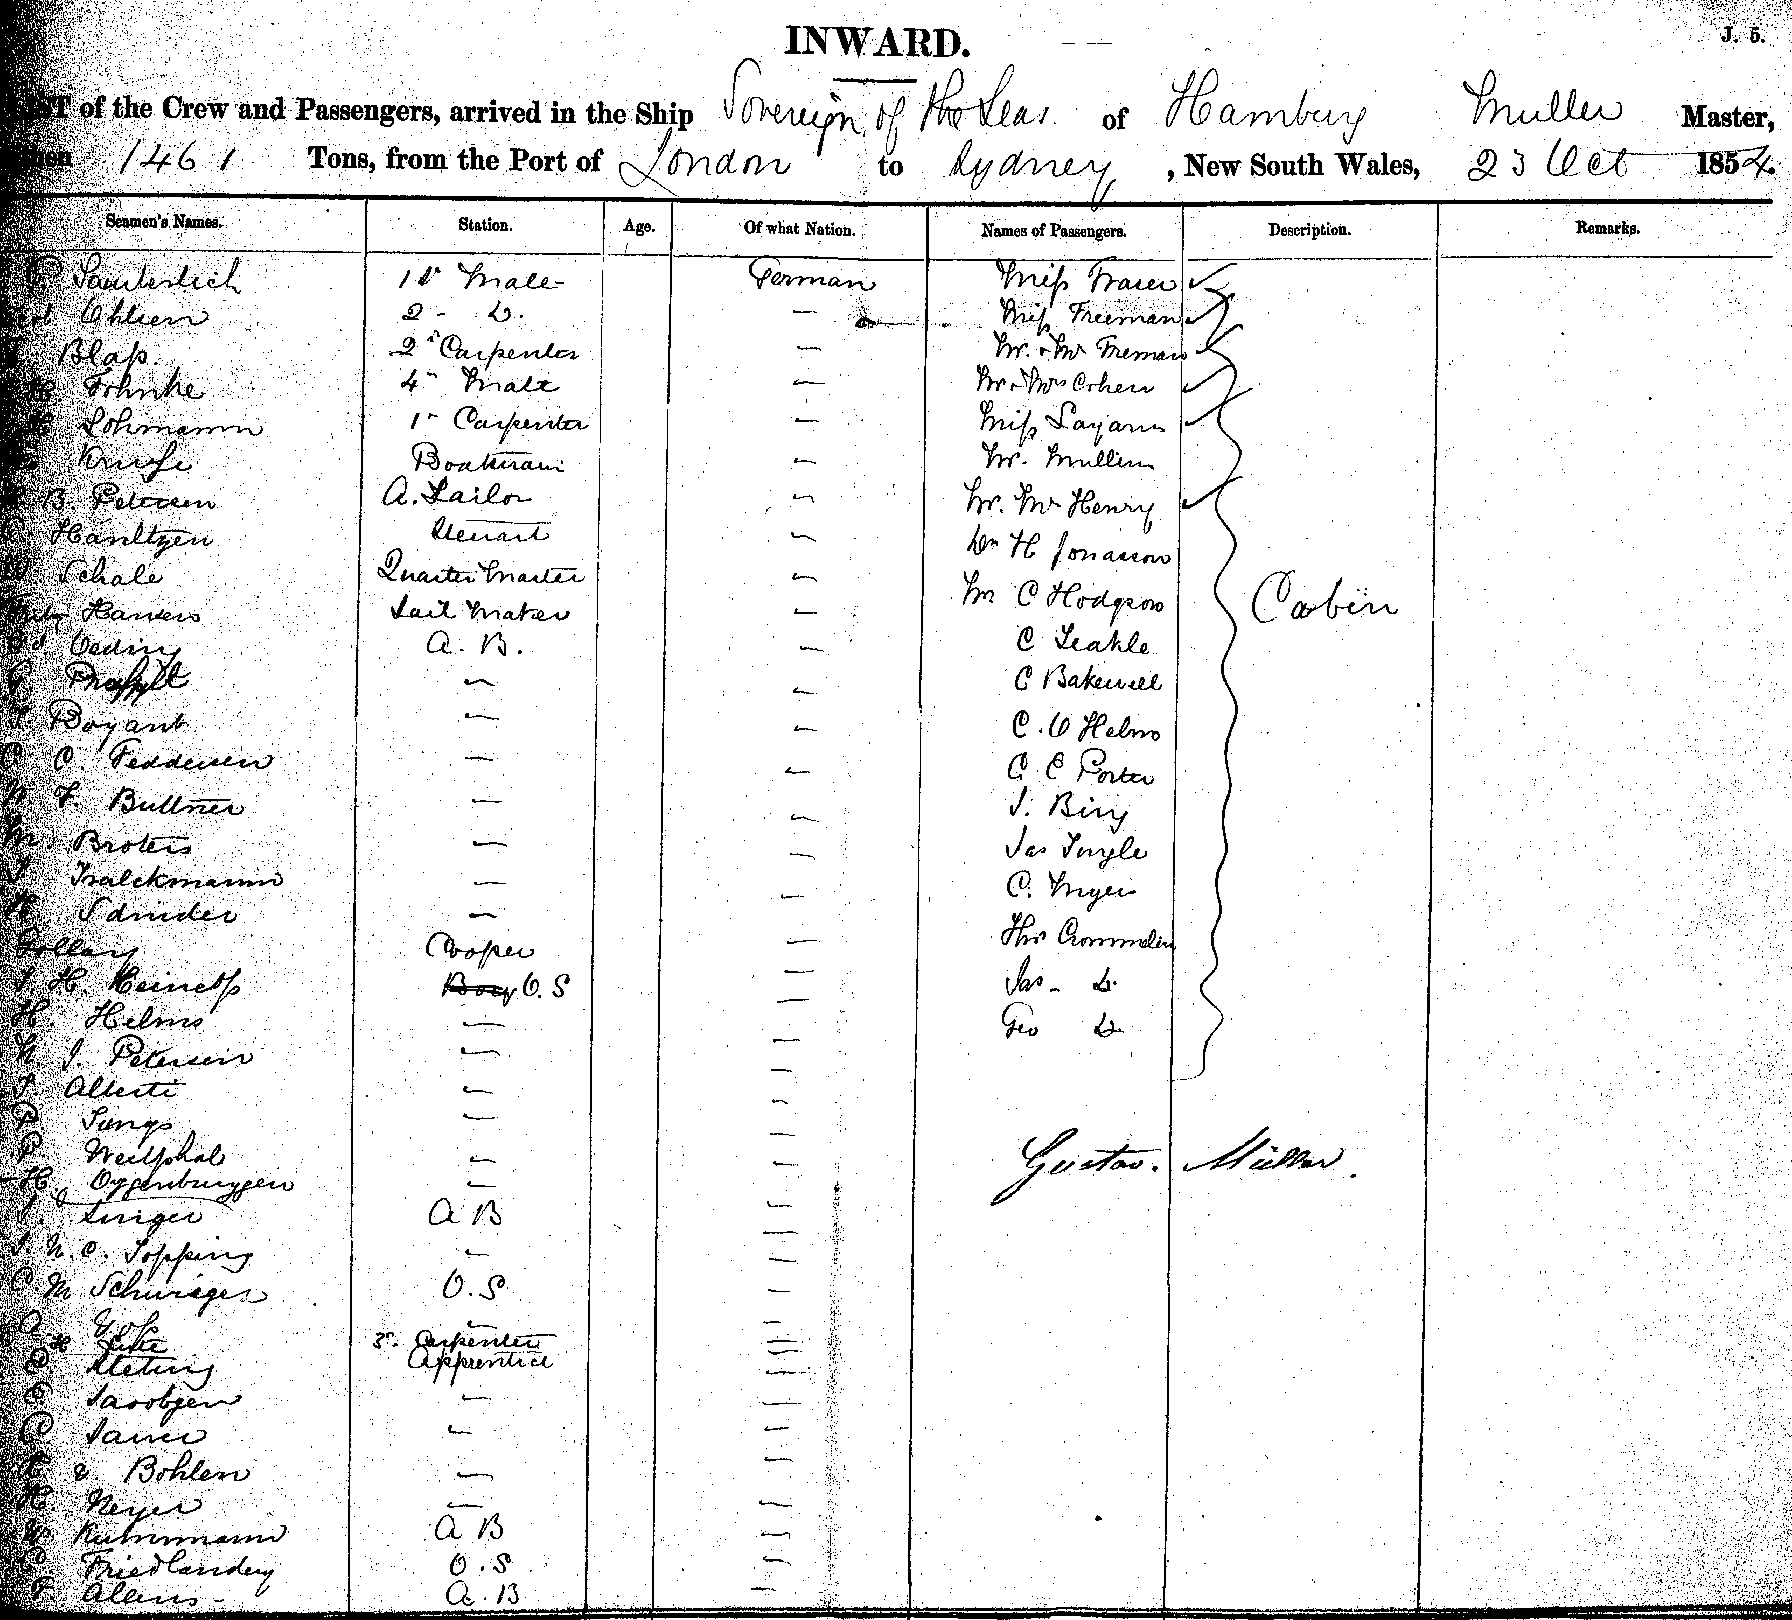 INWARD.
J. 5.
of the Crew and Passengers, arrived in the Ship Sovereign of the Seas of Hamburg Muller Master,
1461 Tons, from the Port of London to Sydney, New South Wales, 23 Oct 1854.
Seamen's Names. Station. Age. Of what Nation. Names of Passengers. Description. Remarks.
Sauterlich 1st Mate German Miss Fraser
Ohlsen 2 - D. — Miss Freeman
Blass 2d Carpenter — Mr. & Mrs Freeman
Fohnke 4th Mate — Mr & Mrs Cohen
Lohmann 1st Carpenter — Miss
Kruse Boatswain — Mr. Mullens
B. Petersen A. Sailor — Mr. Mrs Henry
Hanltzen Steuart — H Jonasson
Schale Quarter Master — Mr C Hodgson Cabin
Hansen Sail Maker — C Leakle
Oeding A. B. — C Bakewell
— —
Boyant — — C. O Helms
C. Feddersen — — G. C Porter
F. Buttner — — J. Bing
Broters — — Jas Ingle
Tralckmann — — C. Myers
Schnider — — Thos Crommelin
Gollary Cooper — Jas - Do
H. Heinetss Boy O. S — Geo Do
H. Helms — —
J. Petersen — —
Alberti — —
Jungs — —
Westphal — — Gustav. Müller.
H. Oggenbuyggen — —
Singer A B —
N. C. Topping — —
M Schwieger O. S —
—
3rd Carpenter —
Steting Apprentice —
Jacobsen — —
— —
Bohlen — —
Meyer — —
Ruhnmann A B —
Friedlandey O. S —
Alens A. B —